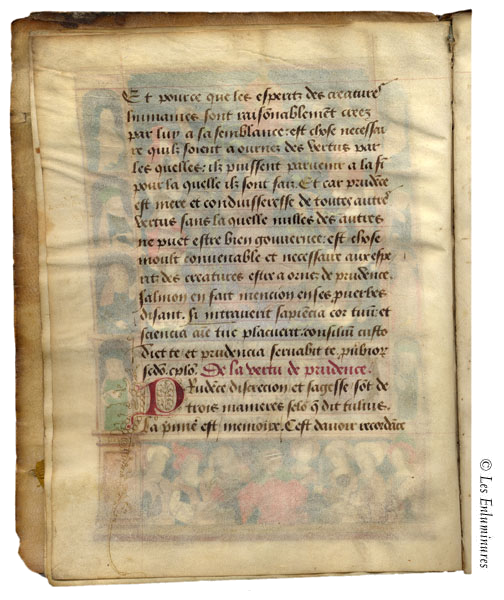 Et pource que les esperitz des creatures
humaines sont raisonnablement creez
par luy a sa semblance: est chose necessai
re quilz soient aournez des vertus par
les quelles: ilz puissent parvenir a la fi
pour la quelle ilz sont faiz. Et car prudēce
est mere et conduisseresse de toutes autres
vertus sans la quelle nulles des autres
ne puet estre bien gouvernee. est chose
moult convenable et necessaire aux espe
ritz des creatures estre aornez de prudence.
Salmon en fait mencion en ses proverbes
disant. Si intraverit sapiēcia cor tuum et
sciencia aīe tue placuerit: consiliū custo
diet te et prudencia servabit te. proverbior
sedō. cplō. De la vertu de prudence.
Prudēce discrecion et sagesse sōt de
trois manieres selō q̄ dit tulius.
La p̄mie est memoire. Cest davoir recordāce
© Les Enluminures